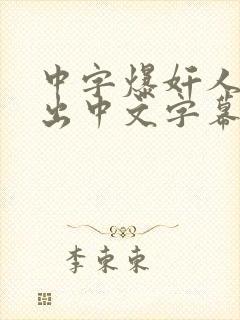 中字爆奸人
出中文字幕
李东东